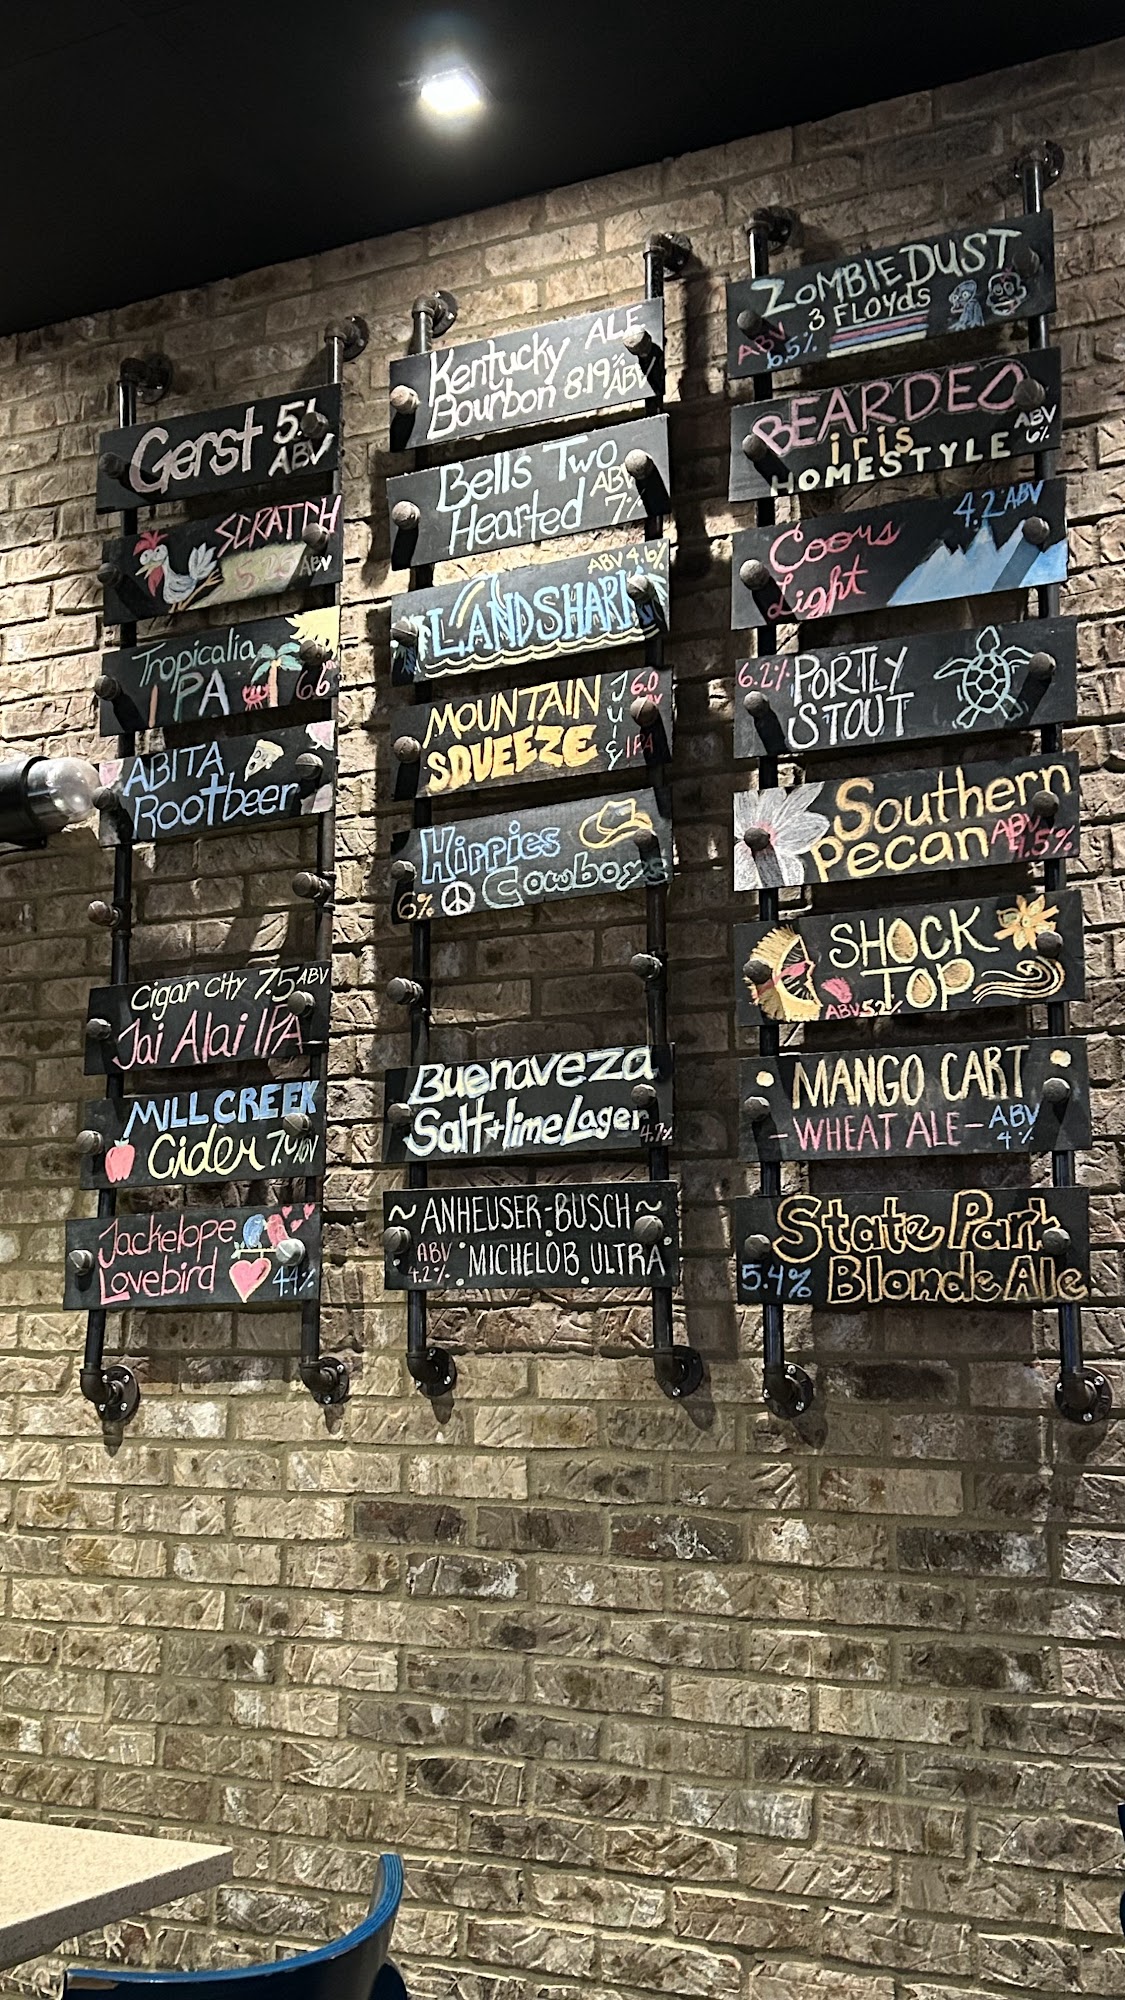 Gerst 5.1
ABV
SCRATCH
5.25 ABV
Tropicalia
IPA 6.6
ABITA
Rootbeer
Cigar City 7.5 ABV
Jai Alai IPA
MILL CREEK
Cider ABV
Jackelope
Lovebird 4.4%
Kentucky ALE
Bourbon 8.19% ABV
Bells Two
Hearted ABV 7%
ABV 4.6%
LANDSHARK
MOUNTAIN
SQUEEZE
JUICY
6.0
IPA
Hippies
Cowboys
6%
Buenaveza
Salt + lime Lager 4.7%
~ ANHEUSER-BUSCH ~
ABV
4.2% MICHELOB ULTRA
ZOMBIE DUST
3 FLOYds
ABV
6.5%
BEARDED
iris
HOMESTYLE
ABV
6%
4.2 ABV
Coors
Light
6.2% PORTLY
STOUT
Southern
Pecan ABV
4.5%
SHOCK
TOP
ABV 5.2%
MANGO CART
- WHEAT ALE - ABV
4%
State Park
5.4% Blonde Ale